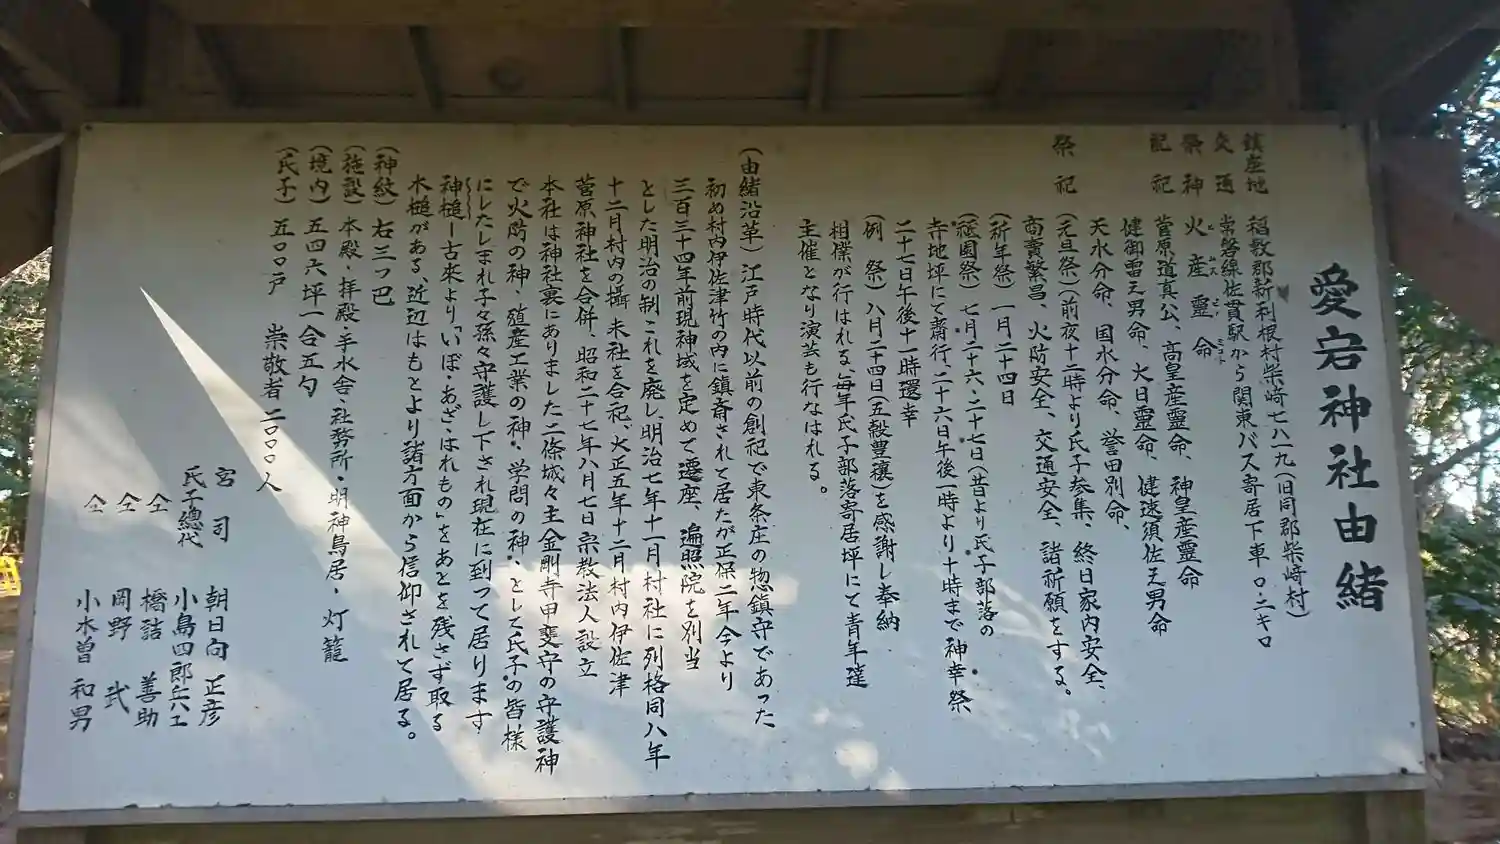 愛宕神社由緒
鎮座地 稲敷郡新利根村柴崎七八一九(旧同郡柴崎村)
交通 常磐線佐貫駅から関東バス寄居下車〇・二キロ
祭神 火産靈命
ホムスビノミコト
配祀 菅原道真公、高皇産靈命、神皇産靈命
健御雷之男命、火日靈命、健速須佐之男命
天水分命、国水分命、誉田別命、
祭祀 (元旦祭)(前夜十二時より氏子参集、終日家内安全、
商売繁昌、火防安全、交通安全、諸祈願をする。
(祈年祭)一月二十四日
(祗園祭)七月二十六・二十七日(昔より氏子部落の
寺地坪にて齋行二十六日午後一時より十時まで神幸祭
二十七日午後十一時還幸
(例 祭)八月二十四日(五穀豊穰)を感謝し奉納
相撲が行はれる、毎年氏子部落寄居坪にて青年達
主催となり演芸も行なはれる。
(由緒沿革)江戸時代以前の創祀で東条庄の惣鎮守であった
初め村内伊佐津竹の内に鎮斎されて居たが正保二年今より
三百三十四年前現神域を定めて遷座、遍照院を別当
とした明治の制これを廃し、明治七年十一月村社に列格同八年
十二月村内の攝末社を合祀、大正五年十二月村内伊佐津
菅原神社を合併、昭和二十七年八月七日宗教法人設立
本社は神社裏にありました二條城々主金剛寺甲斐守の守護神
で火防の神、殖産工業の神、学問の神、として氏子の皆様
にしたしまれ子々孫々守護し下され現在に到って居ります
神槌ー古来より「いぼ・あざ・はれもの」をあとを残さず取る
木槌がある、近辺はもとより諸方面から信仰されて居る。
(神紋)右三つ巴
(施設)本殿・拝殿・手水舎・社務所・明神鳥居・灯籠
(境内)五四六坪一合五勺
(氏子)五〇〇戸 崇敬者二〇〇〇人
宮司 朝日向正彦
氏子總代 小鳥四郎兵エ
仝 橋詰善助
仝 岡野武
仝 小木曽和男